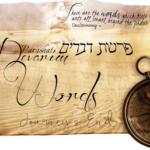 These are the words which Moses
unto all Israel beyond the Jordan
Deuteronomy
Parashat פרשת דברים
Devarim
Words